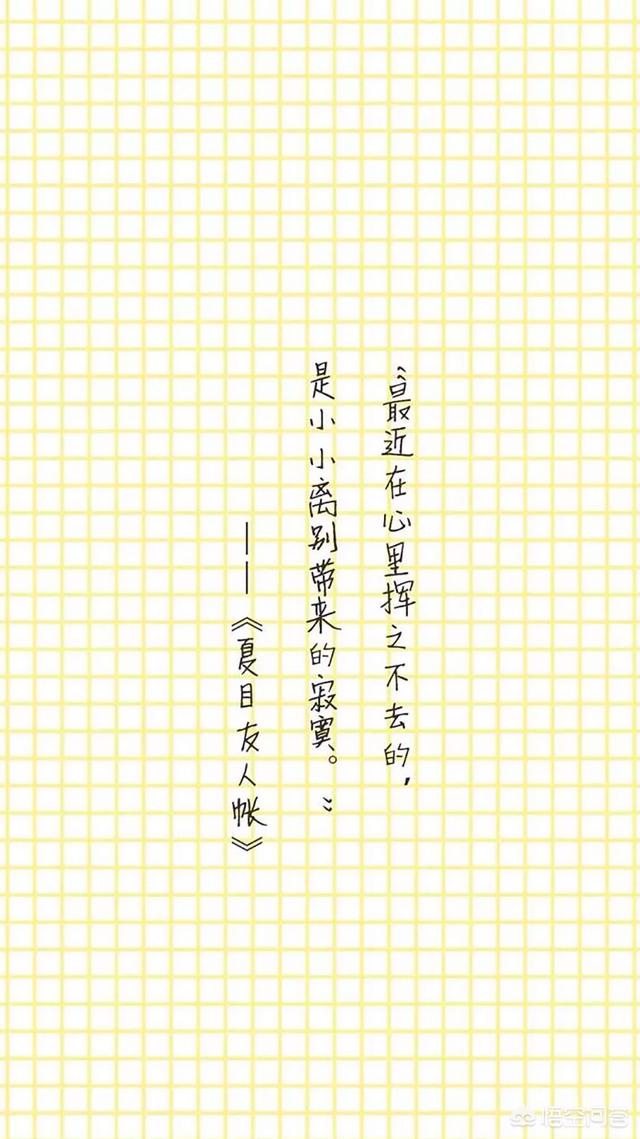 “最近在心里挥之不去的，
是小小离别带来的寂寞。”
——《夏目友人帐》
悟空问答